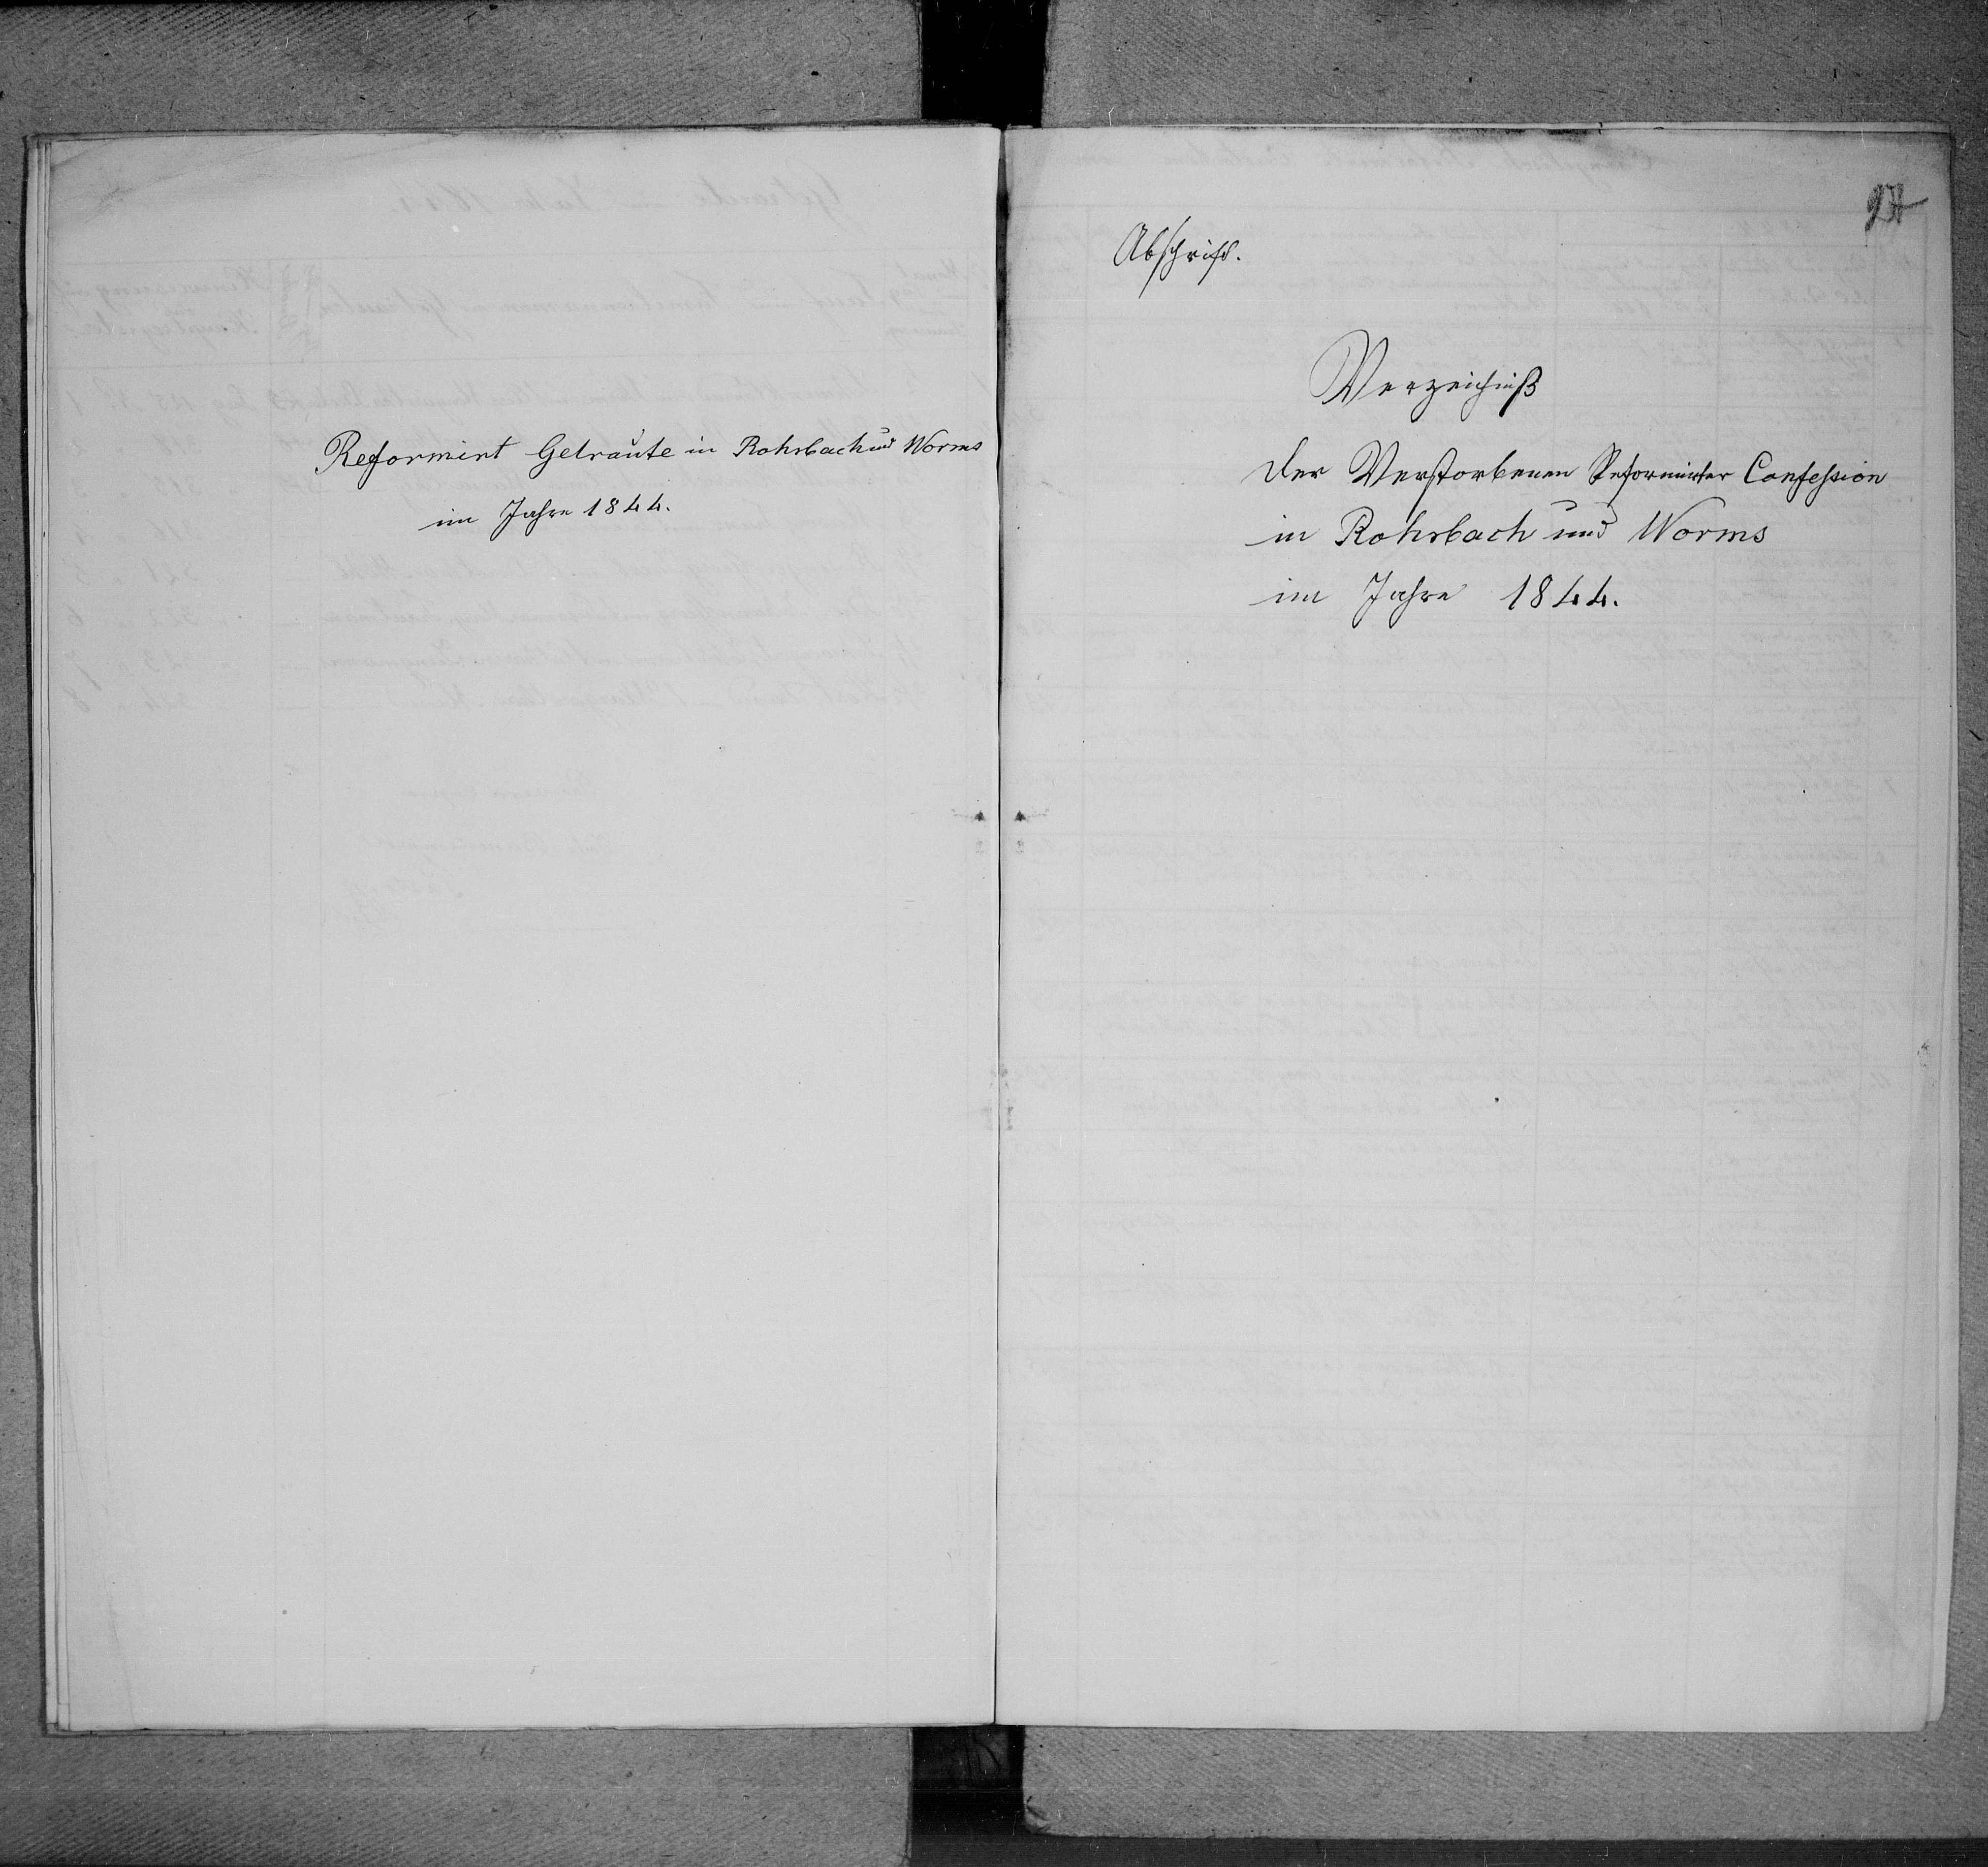 Reformirt Getraute in Rohrbach und Worms
im Jahre 1844.
Abschrift.
Verzeichniß
der Verstorbenen Reformirter Confession
in Rohrbach und Worms
im Jahre 1844.